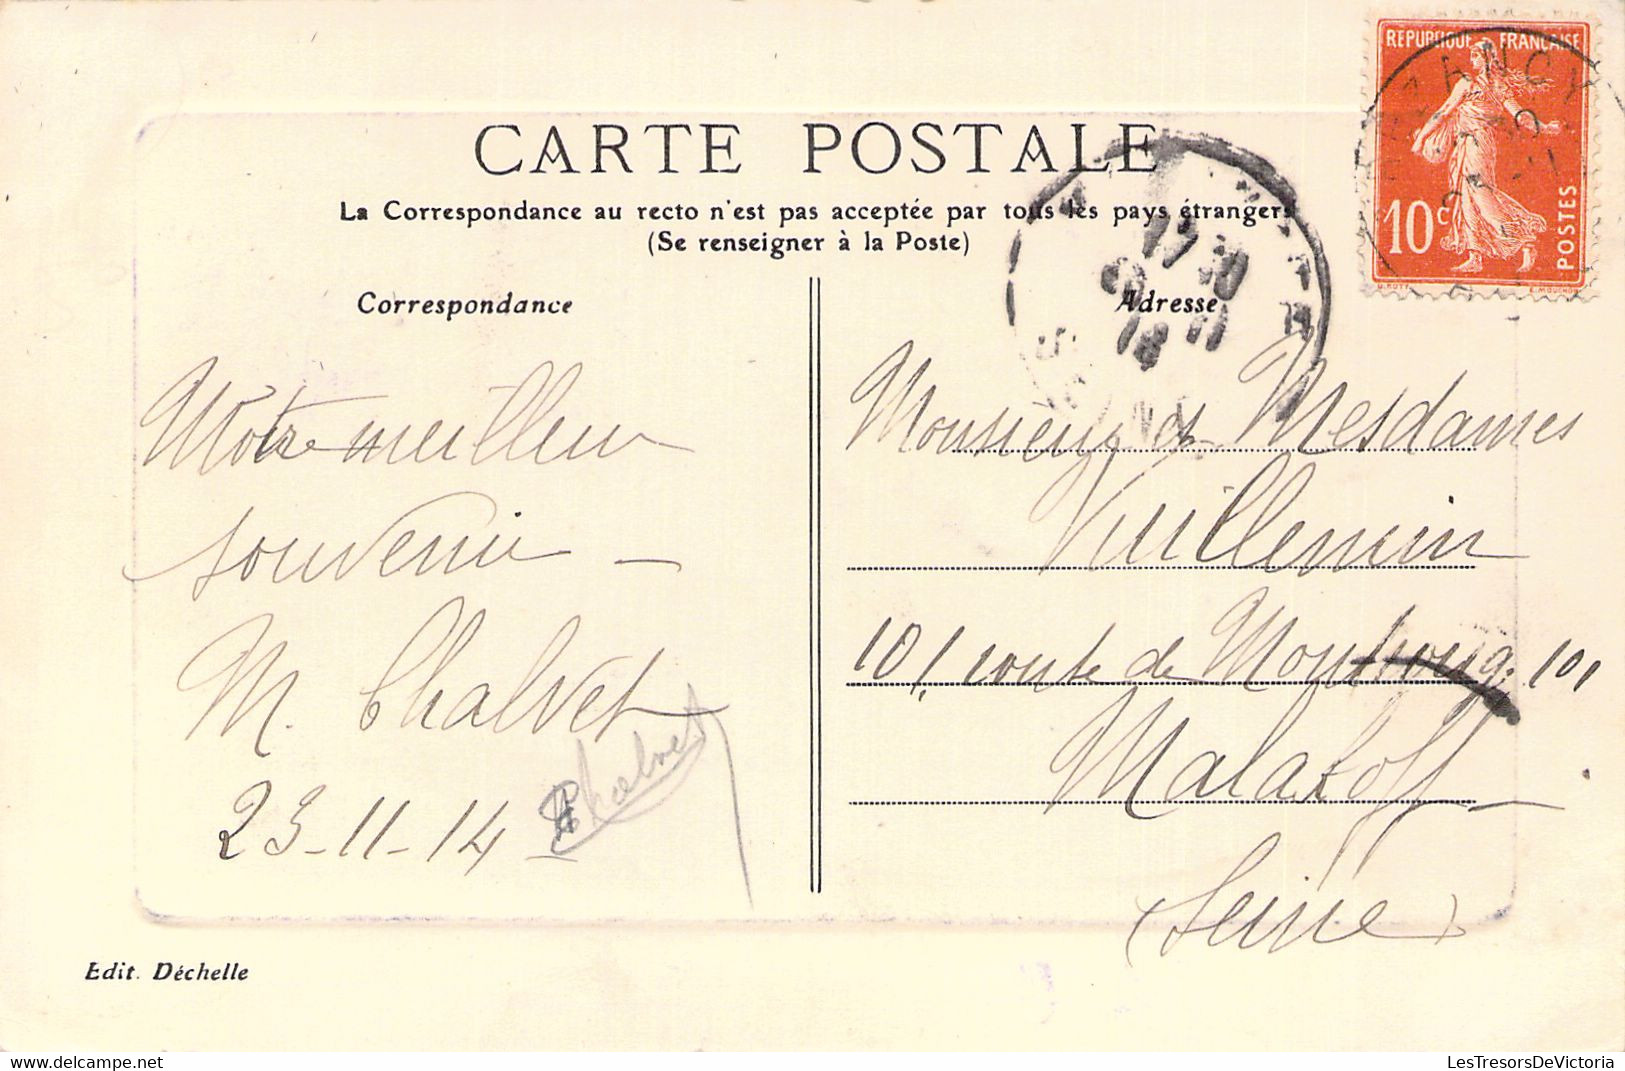 CARTE POSTALE
La Correspondance au recto n'est pas acceptée par tous les pays étrangers
(Se renseigner à la Poste)
Correspondance
Notre meilleur
souvenir —
M. Chalvet
23-11-14
Chalvet
Edit. Déchelle
REPUBLIQUE FRANÇAISE
10c
POSTES
O.ROTY
E.MOUCHON
17 30
Adresse
Monsieur et Mesdames
Vuillemin
101, route de Montrouge 101
Malakoff —
(Seine)
LesTresorsDeVictoria